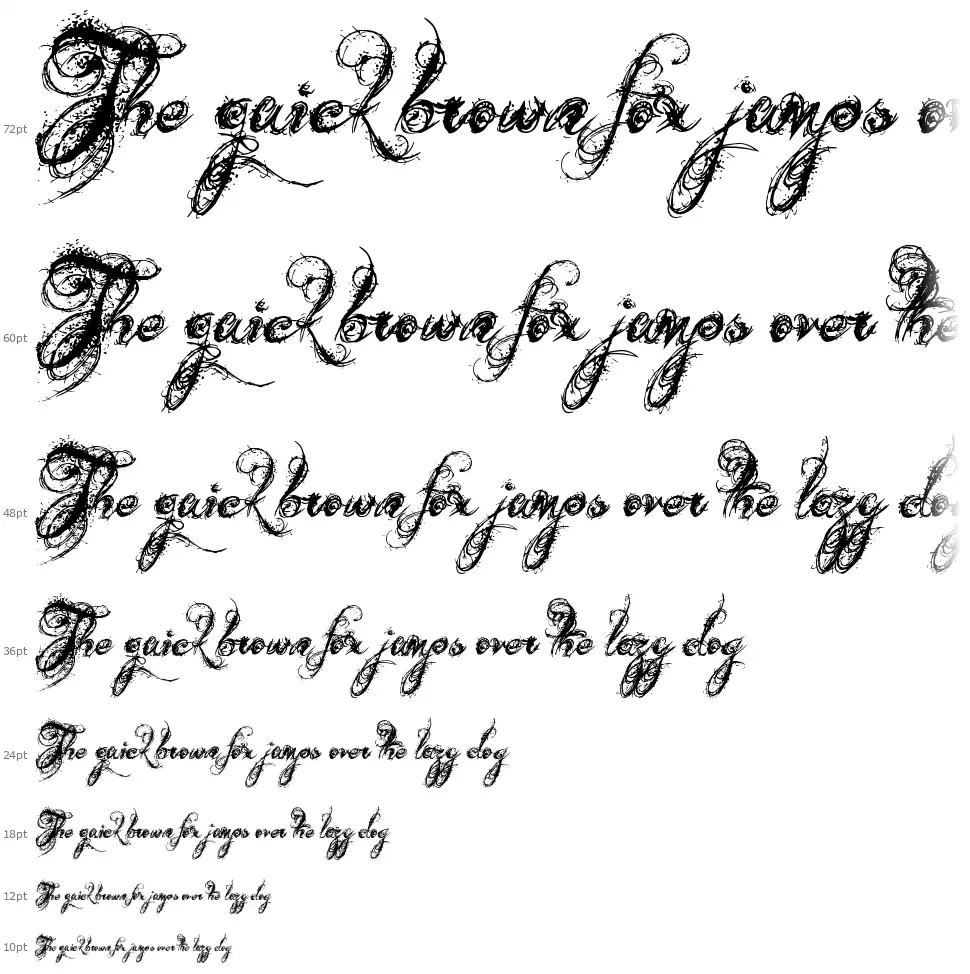 72pt The quick brown fox jumps o
60pt The quick brown fox jumps over the
48pt The quick brown fox jumps over the lazy do
36pt The quick brown fox jumps over the lazy dog
24pt The quick brown fox jumps over the lazy dog
18pt The quick brown fox jumps over the lazy dog
12pt The quick brown fox jumps over the lazy dog
10pt The quick brown fox jumps over the lazy dog